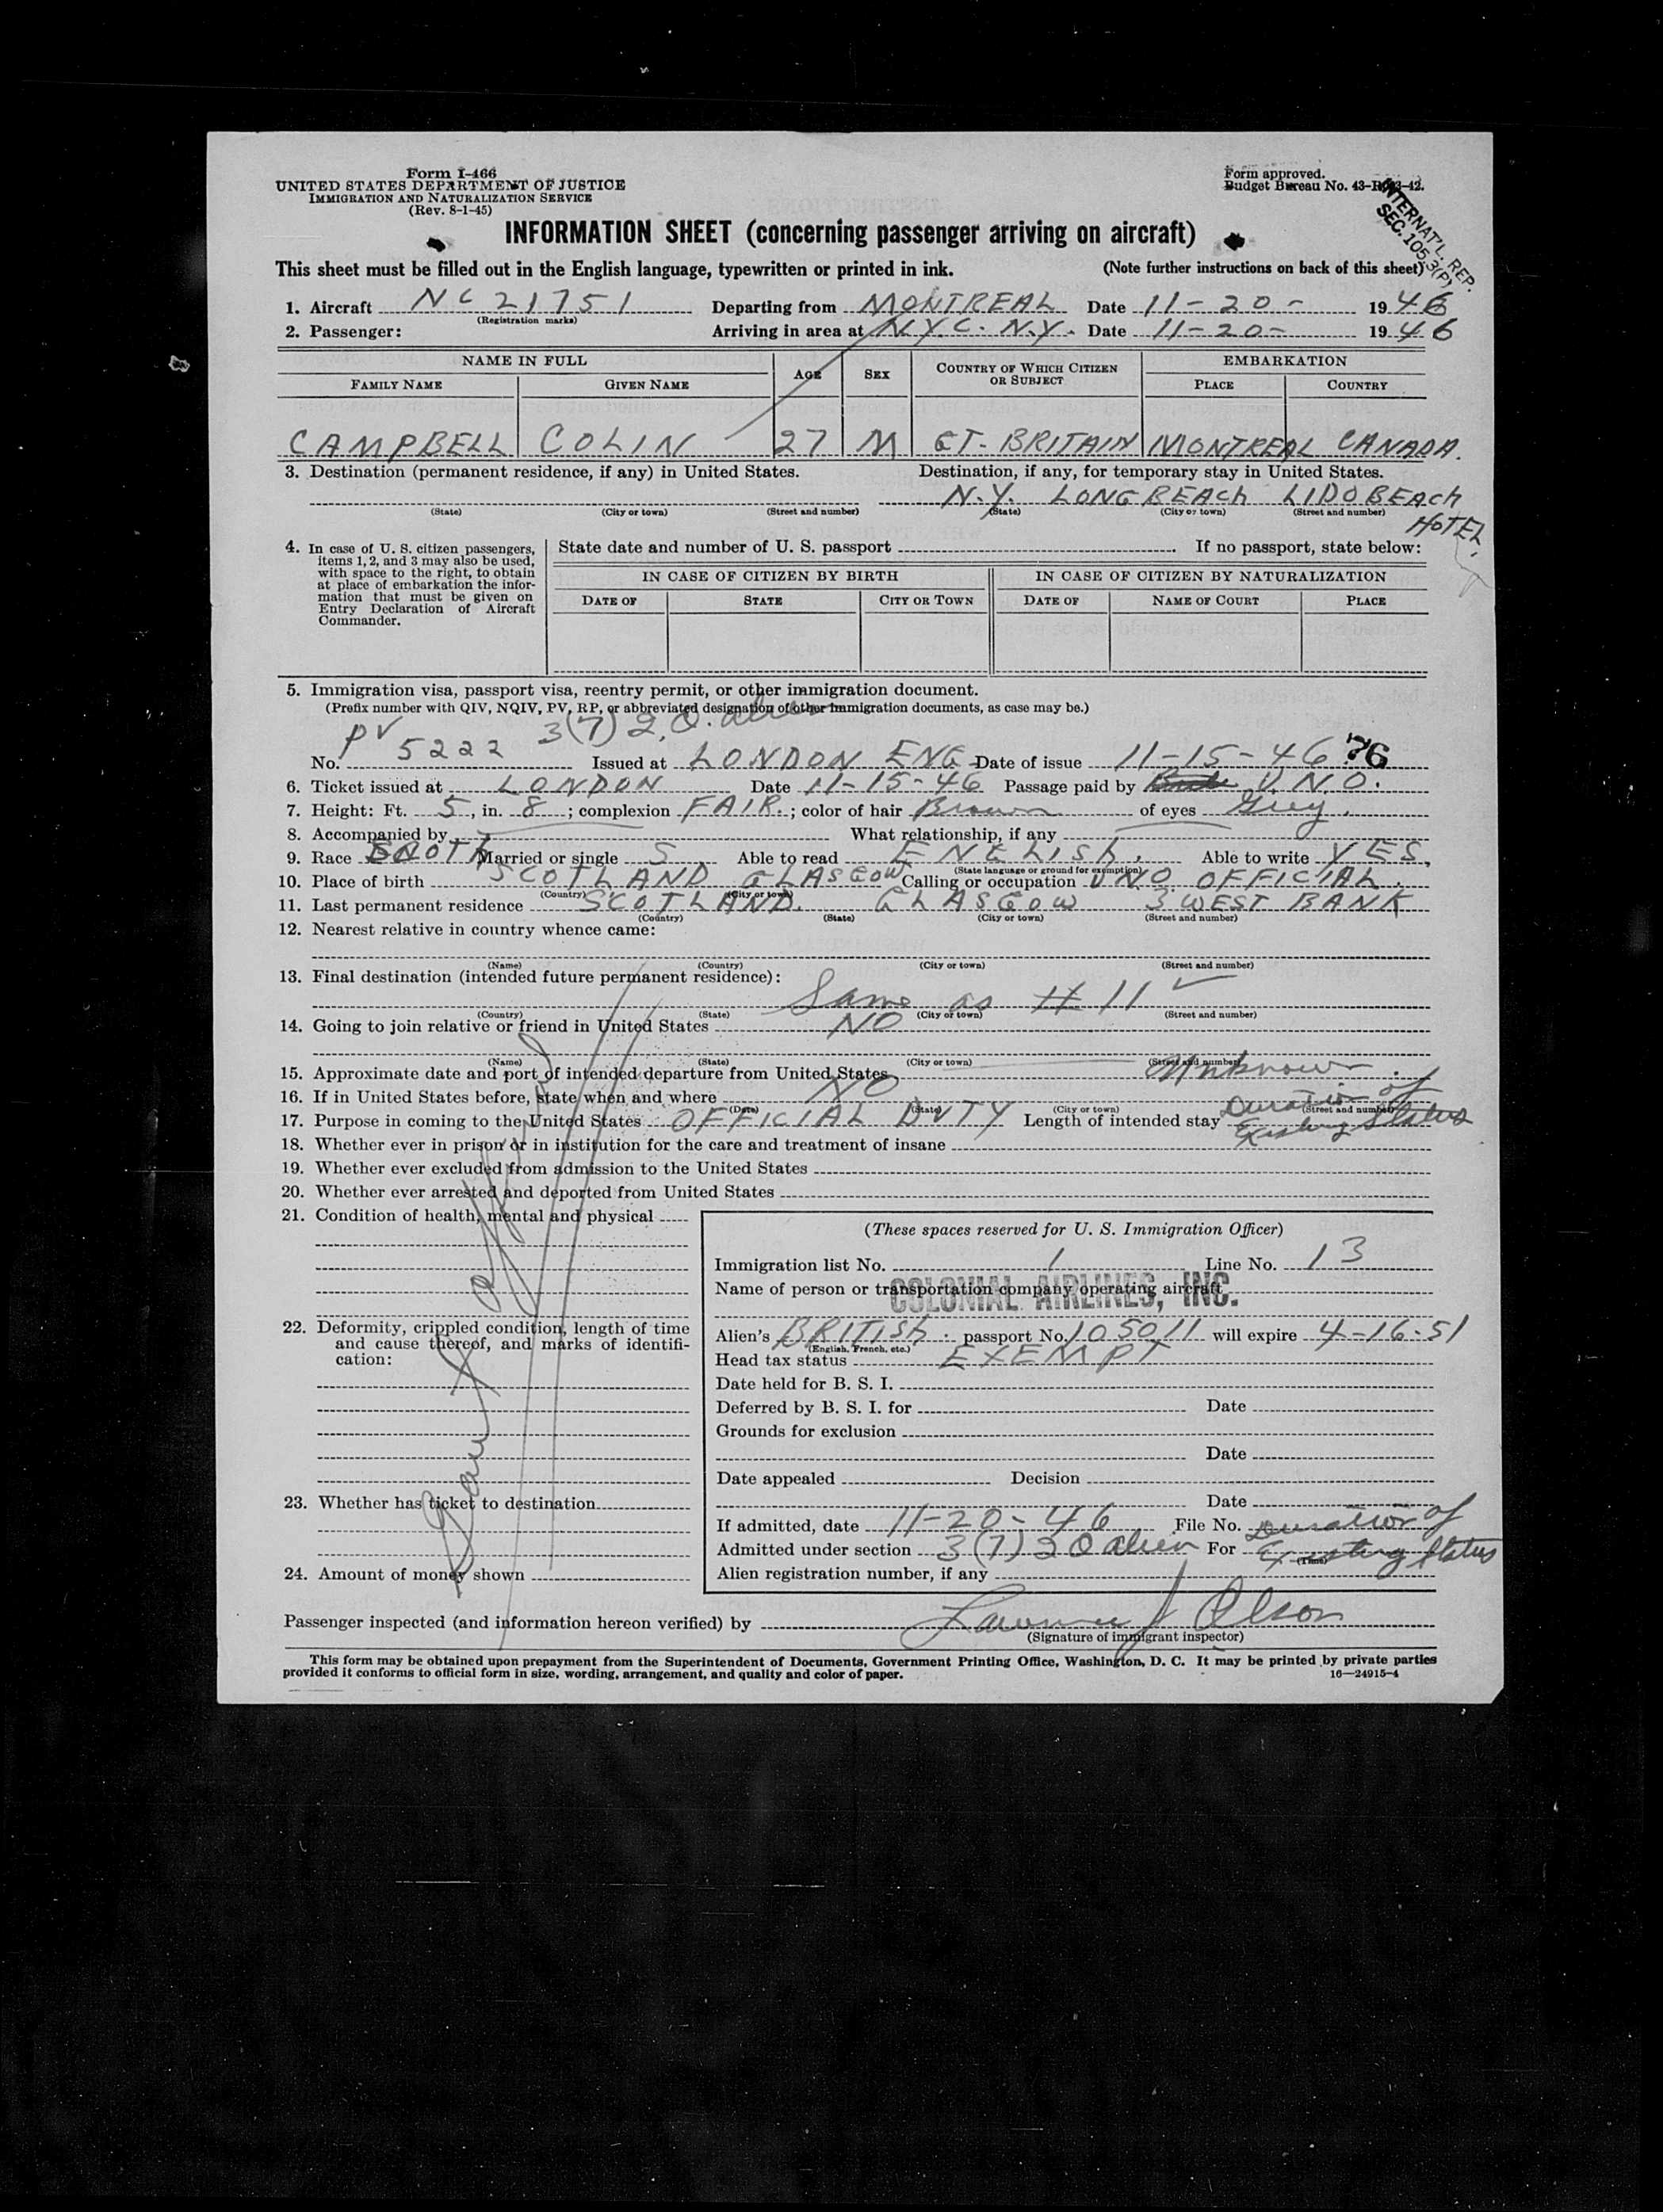 Form I-466
UNITED STATES DEPARTMENT OF JUSTICE
IMMIGRATION AND NATURALIZATION SERVICE
(Rev. 8-1-45)
Form approved.
Budget Bureau No. 43-
INTERNAT'L. REP.
SEC. 105.3(P)
INFORMATION SHEET (concerning passenger arriving on aircraft)
This sheet must be filled out in the English language, typewritten or printed in ink. (Note further instructions on back of this sheet)
1. Aircraft NC 21751 Departing from MONTREAL Date 11-20- 1946
(Registration marks)
2. Passenger: Arriving in area at N.Y.C. N.Y. Date 11-20- 1946
NAME IN FULL AGE SEX COUNTRY OF WHICH CITIZEN OR SUBJECT EMBARKATION
FAMILY NAME GIVEN NAME PLACE COUNTRY
CAMPBELL COLIN 27 M GT-BRITAIN MONTREAL CANADA.
3. Destination (permanent residence, if any) in United States. Destination, if any, for temporary stay in United States.
N.Y. LONG BEACH LIDO BEACH HOTEL
(State) (City or town) (Street and number) (State) (City or town) (Street and number)
4. In case of U. S. citizen passengers, items 1, 2, and 3 may also be used, with space to the right, to obtain at place of embarkation the information that must be given on Entry Declaration of Aircraft Commander.
State date and number of U. S. passport If no passport, state below:
IN CASE OF CITIZEN BY BIRTH IN CASE OF CITIZEN BY NATURALIZATION
DATE OF STATE CITY OR TOWN DATE OF NAME OF COURT PLACE
5. Immigration visa, passport visa, reentry permit, or other immigration document.
(Prefix number with QIV, NQIV, PV, RP, or abbreviated designation of other immigration documents, as case may be.)
3(7) I.O. alien
No. PV 5222 Issued at LONDON ENG Date of issue 11-15-46 76
6. Ticket issued at LONDON Date 11-15-46 Passage paid by U.N.O.
7. Height: Ft. 5, in. 8; complexion FAIR.; color of hair Brown of eyes Grey.
8. Accompanied by What relationship, if any
9. Race SCOTH Married or single S Able to read ENGLISH. Able to write YES.
(State language or ground for exemption)
10. Place of birth SCOTLAND GLASGOW Calling or occupation UNO OFFICIAL.
(Country) (City or town)
11. Last permanent residence SCOTLAND. GLASGOW 3 WEST BANK
(Country) (State) (City or town) (Street and number)
12. Nearest relative in country whence came:
(Name) (Country) (City or town) (Street and number)
13. Final destination (intended future permanent residence):
Same as #11
(Country) (State) (City or town) (Street and number)
14. Going to join relative or friend in United States NO
(Name) (State) (City or town) (Street and number)
15. Approximate date and port of intended departure from United States Unknown.
16. If in United States before, state when and where NO
(Date) (State) (City or town) (Street and number)
17. Purpose in coming to the United States OFFICIAL DUTY Length of intended stay Duration of Existing Status
18. Whether ever in prison or in institution for the care and treatment of insane
19. Whether ever excluded from admission to the United States
20. Whether ever arrested and deported from United States
21. Condition of health, mental and physical
22. Deformity, crippled condition, length of time and cause thereof, and marks of identification:
23. Whether has ticket to destination
24. Amount of money shown
(These spaces reserved for U. S. Immigration Officer)
Immigration list No. 1 Line No. 13
Name of person or transportation company operating aircraft
COLONIAL AIRLINES, INC.
Alien's BRITISH. passport No. 105011 will expire 4-16-51
(English, French, etc.)
Head tax status EXEMPT
Date held for B. S. I.
Deferred by B. S. I. for Date
Grounds for exclusion
Date
Date appealed Decision
Date
If admitted, date 11-20-46 File No.
Admitted under section 3(7) I O alien For Duration of Existing Status
(Time)
Alien registration number, if any
Passenger inspected (and information hereon verified) by Olson
(Signature of immigrant inspector)
This form may be obtained upon prepayment from the Superintendent of Documents, Government Printing Office, Washington, D. C. It may be printed by private parties
provided it conforms to official form in size, wording, arrangement, and quality and color of paper. 16—24915-4